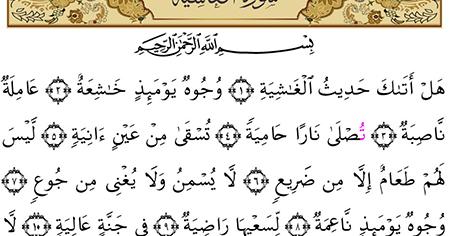 سورة الغاشية
بِسْمِ ٱللَّهِ ٱلرَّحْمَـٰنِ ٱلرَّحِيمِ
هَلْ أَتَىٰكَ حَدِيثُ ٱلْغَـٰشِيَةِ ﴿١﴾ وُجُوهٌ يَوْمَئِذٍ خَـٰشِعَةٌ ﴿٢﴾ عَامِلَةٌ
نَّاصِبَةٌ ﴿٣﴾ تُصْلَىٰ نَارًا حَامِيَةً ﴿٤﴾ تُسْقَىٰ مِنْ عَيْنٍ ءَانِيَةٍ ﴿٥﴾ لَّيْسَ
لَهُمْ طَعَامٌ إِلَّا مِن ضَرِيعٍ ﴿٦﴾ لَّا يُسْمِنُ وَلَا يُغْنِى مِن جُوعٍ ﴿٧﴾
وُجُوهٌ يَوْمَئِذٍ نَّاعِمَةٌ ﴿٨﴾ لِّسَعْيِهَا رَاضِيَةٌ ﴿٩﴾ فِى جَنَّةٍ عَالِيَةٍ ﴿١٠﴾ لَّا